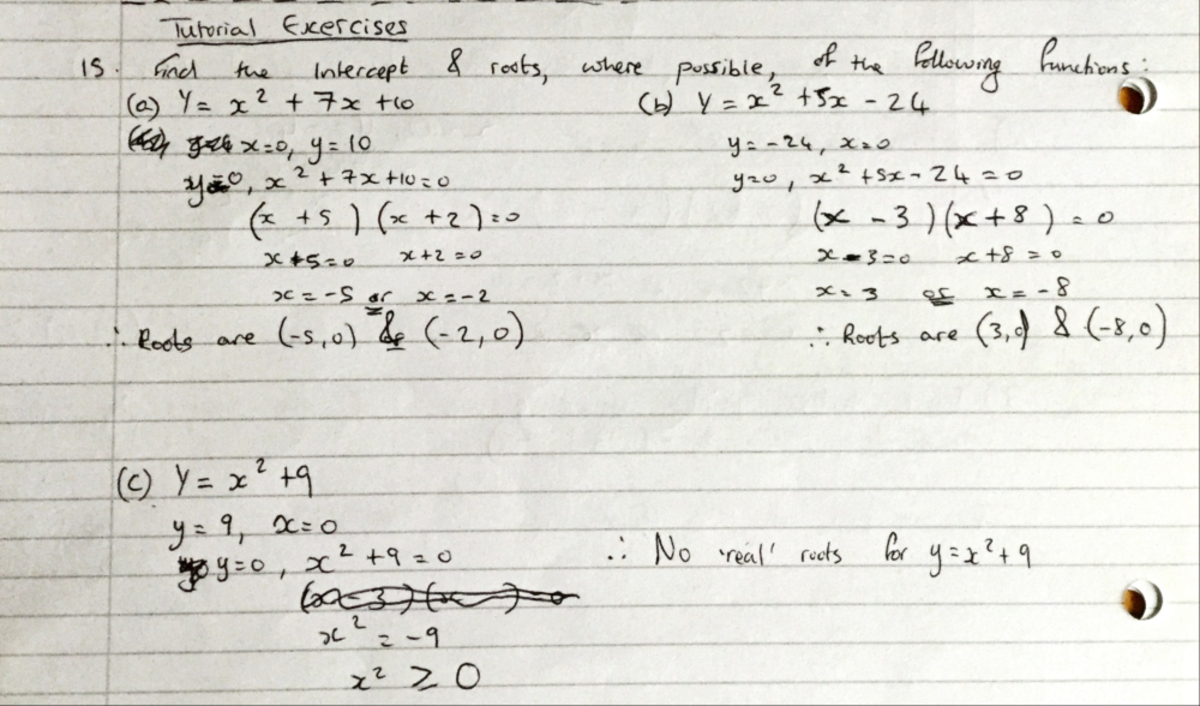 Tutorial Exercises
15. Find the Intercept & roots, where possible, of the following functions:
(a) Y = x² + 7x + 10
x=0, y = 10
y=0, x² + 7x + 10 = 0
(x + 5) (x + 2) = 0
x + 5 = 0 x + 2 = 0
x = -5 or x = -2
∴ Roots are (-5,0) & (-2,0)
(b) Y = x² + 5x - 24
y = -24, x = 0
y=0, x² + 5x - 24 = 0
(x - 3)(x + 8) = 0
x - 3 = 0 x + 8 = 0
x = 3 or x = -8
∴ Roots are (3,0) & (-8,0)
(c) Y = x² + 9
y = 9, x = 0
y = 0, x² + 9 = 0
x² = -9
x² ≥ 0
∴ No 'real' roots for y = x² + 9